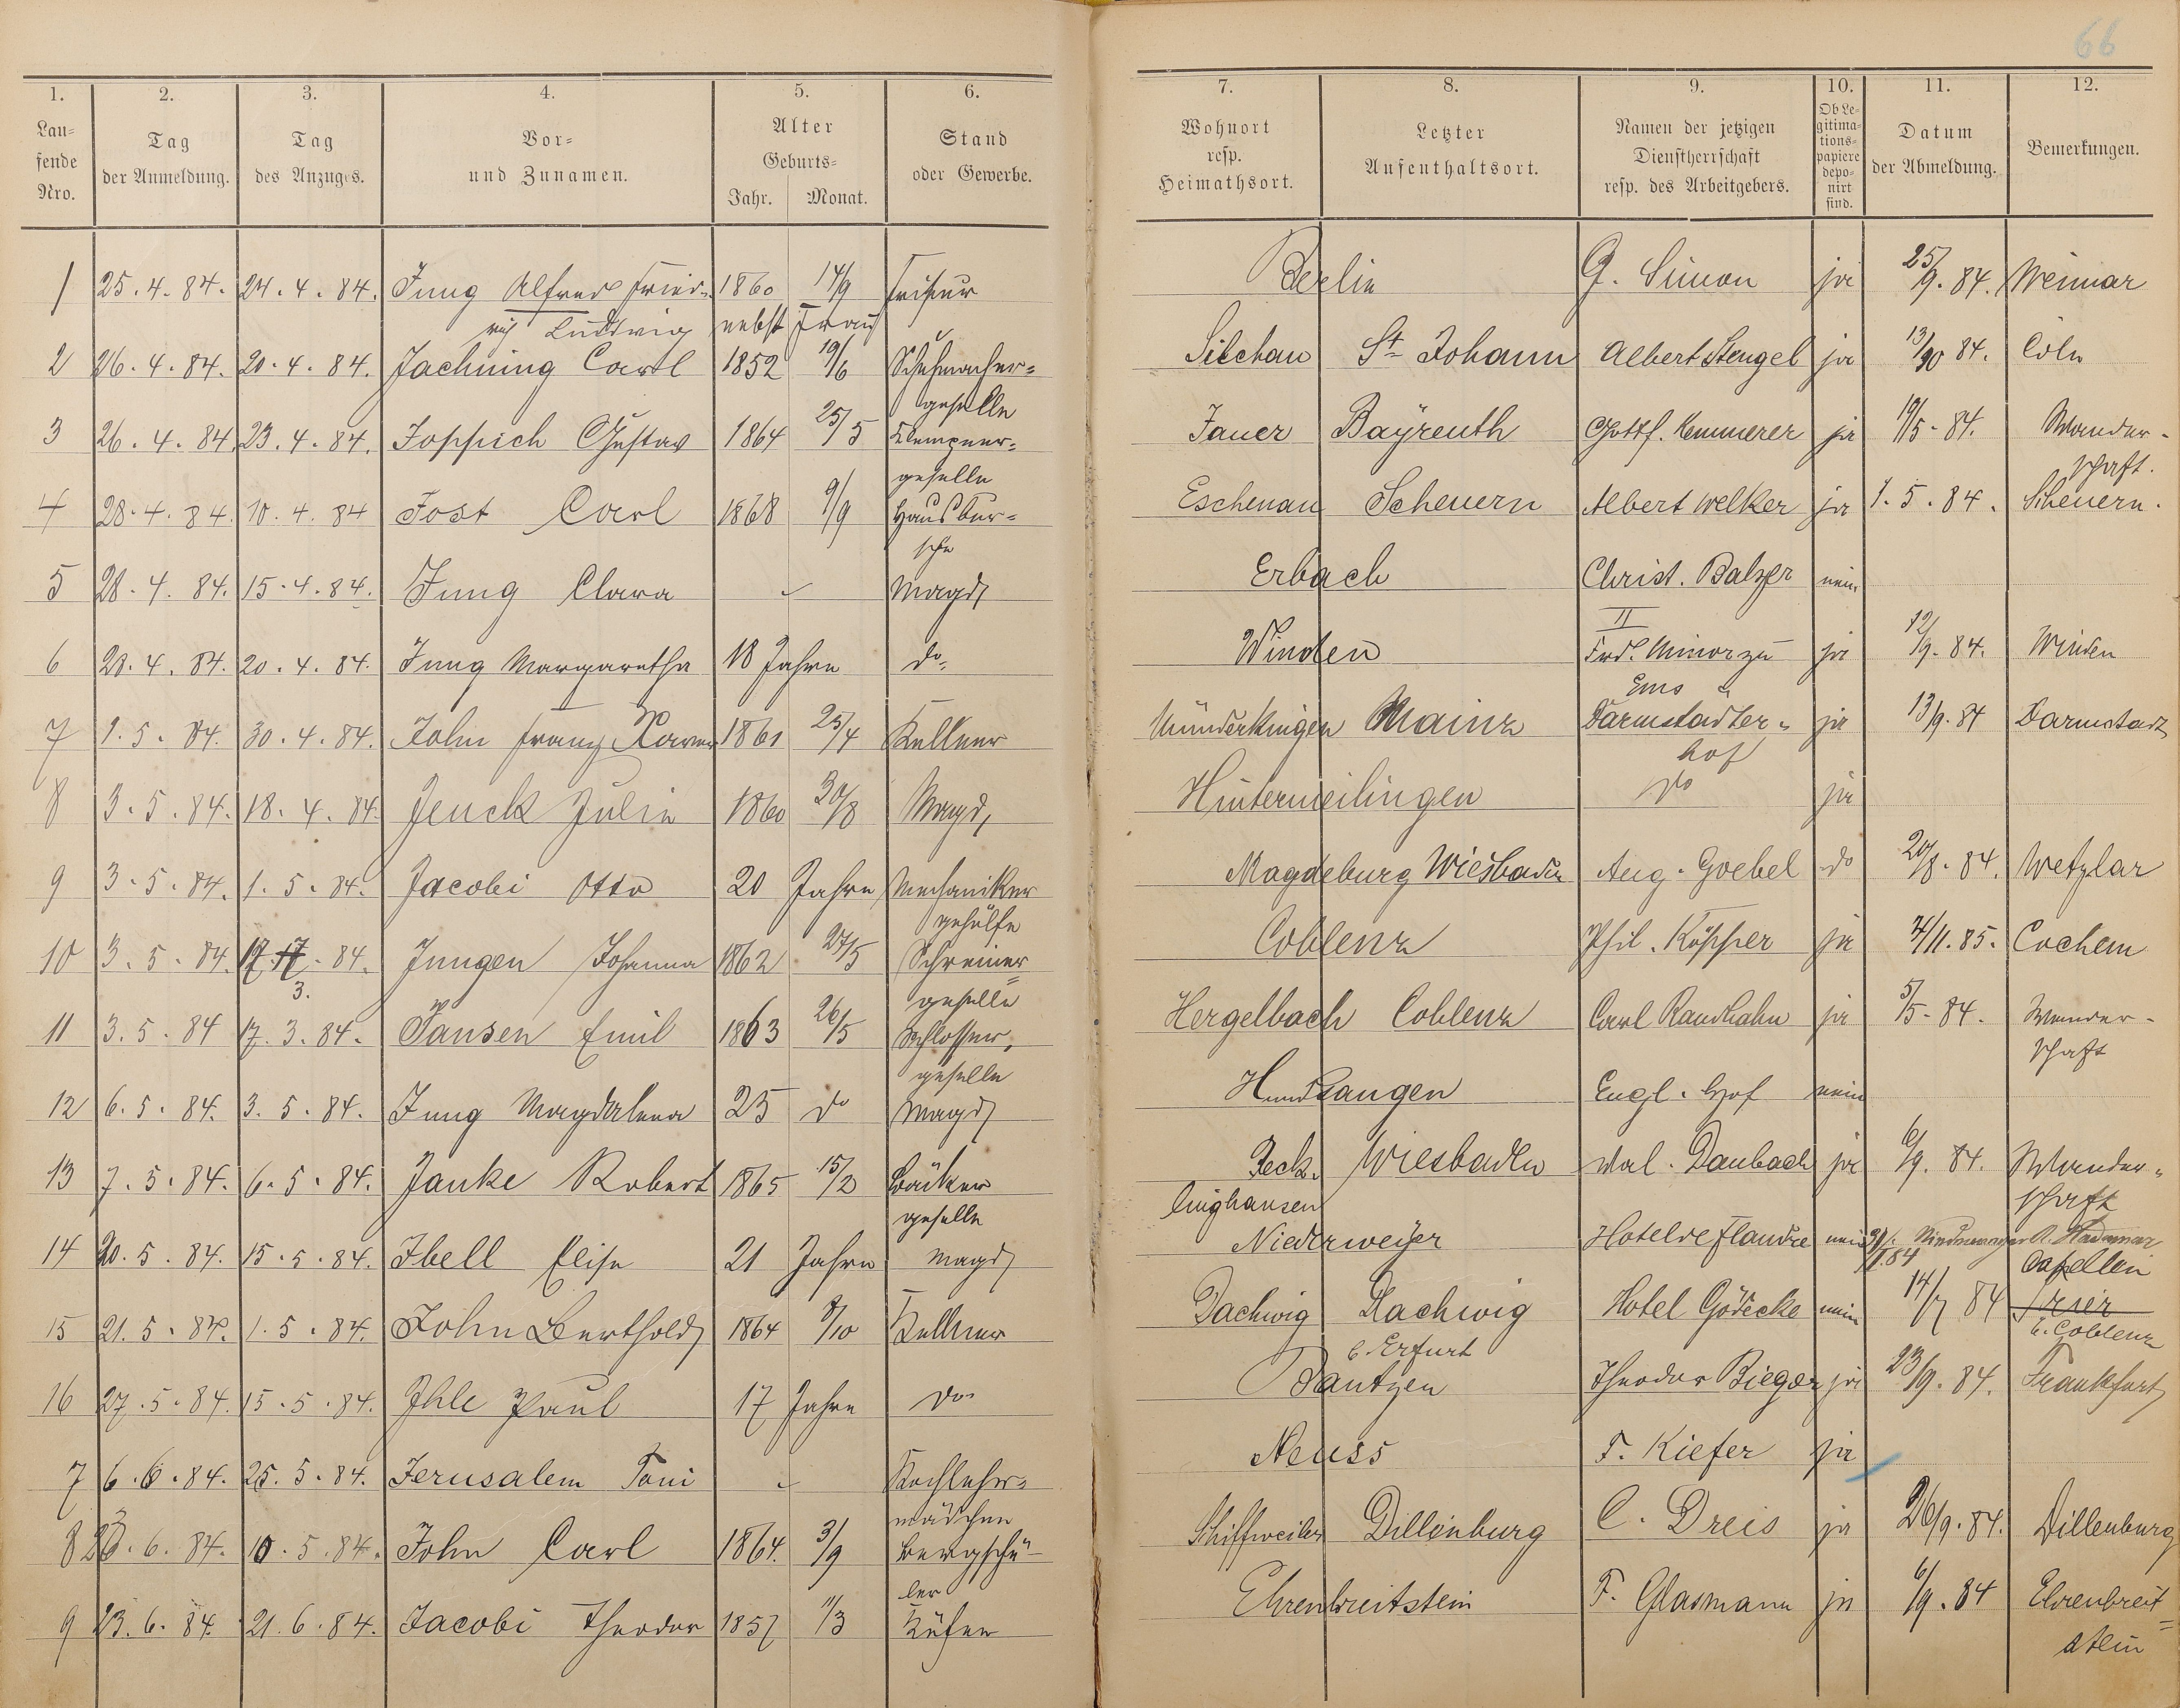 66
1. 2. 3. 4. 5. 6. 7. 8. 9. 10. 11. 12.
Lau=
fende
Nro.
Tag
der Anmeldung.
Tag
des Anzuges.
Vor=
und Zunamen.
Alter
Geburts=
Jahr. Monat.
Stand
oder Gewerbe.
Wohnort
resp.
Heimathsort.
Letzter
Aufenthaltsort.
Namen der jetzigen
Dienstherrschaft
resp. des Arbeitgebers.
Ob Le=
gitima=
tions=
papiere
depo=
nirt
sind.
Datum
der Abmeldung.
Bemerkungen.
1 25.4.84. 24.4.84. Jung Alfred Fried= 1860 14/9 Friseur Berlin G. Simon ja 25/9.84. Weimar
rich Ludwig nebst Frau
2 26.4.84. 20.4.84. Jachning Carl 1852 19/6 Schuhmacher= Silchau St. Johann Albert Stengel ja 13/10 84. Cöln
geselle
3 26.4.84 23.4.84. Joppich Gustav 1864 25/5 Klempner= Jauer Bayreuth Gottf. Kemmerer ja 19/5.84. Wander-
geselle schaft.
4 28.4.84 10.4.84 Jost Carl 1868 9/9 Hausbur= Eschenau Scheuern Albert Welker ja 1.5.84. Scheuern.
sche
5 28.4.84. 15.4.84. Jung Clara - Magd Erbach Christ. Balzer nein
II
6 28.4.84. 20.4.84. Jung Margaretha 18 Jahre do. Winden Frd. Minor zu ja 12/9.84. Winden
Ems
7 1.5.84. 30.4.84. John Franz Xaver 1861 25/4 Kellner Munderkingen Mainz Darmstädter= ja 13/9.84 Darmstadt
hof
8 3.5.84. 18.4.84. Jenck Julie 1860 30/8 Magd, Hintermeilingen do ja
9 3.5.84. 1.5.84. Jacobi Otto 20 Jahre Mechaniker Magdeburg Wiesbaden Aug. Goebel do 20/8.84. Wetzlar
gehülfe
10 3.5.84. 17.17.84. Jungen Johanna 1862 27/5 Schreiner Coblenz Phil. Köpper ja 4/11.85. Cochem
3. geselle
11 3.5.84 17.3.84. Jansen Emil 1863 26/5 Schlosser= Hergelbach Coblenz Carl Randhahn ja 5/5.84. Wander-
geselle schaft
12 6.5.84. 3.5.84. Jung Magdalena 25 do Magd Hundsangen Engl. Hof nein
13 7.5.84. 6.5.84. Janke Robert 1865 15/2 Bäcker Reck- Wiesbaden Wal. Daubach ja 6/9.84. Wander=
geselle linghausen schaft
14 20.5.84. 15.5.84. Ibell Elise 21 Jahre Magd Niederweyer Hotel de Flandre nein Niederweyer A. Hadamar
Capellen
15 21.5.84. 1.5.84. John Berthold 1864 8/10 Kellner Dachwig Dachwig Hotel Gödecke nein 14/7 84 Trier
b. Erfurt b. Coblenz
16 27.5.84. 15.5.84. Ihle Paul 17 Jahre do. Bautzen Theodor Bieger ja 23/9.84. Frankfurt
7 6.6.84. 25.5.84. Jerusalem Toni - Kochlehr= Neuss F. Kiefer ja
mädchen
8 23.6.84. 10.5.84. John Carl 1864. 3/9 Bergschü- Schiffweiler Dillenburg C. Dreis ja 26/9.84. Dillenburg
ler
9 23.6.84. 21.6.84. Jacobi Theodor 1857 11/3 Küfer Ehrenbreitstein F. Glasmann ja 6/9.84 Ehrenbreit=
stein